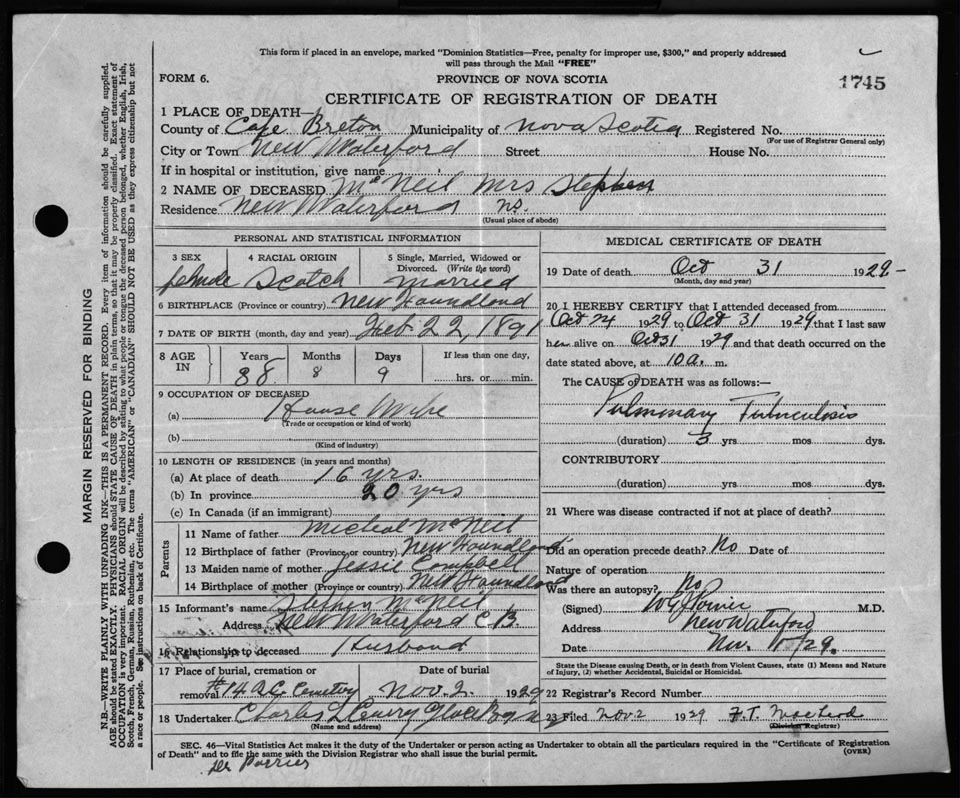 This form if placed in an envelope, marked "Dominion Statistics—Free, penalty for improper use, $300," and properly addressed
will pass through the Mail "FREE"
FORM 6.
PROVINCE OF NOVA SCOTIA
1745
CERTIFICATE OF REGISTRATION OF DEATH
1 PLACE OF DEATH—
County of Cape Breton Municipality of Nova Scotia Registered No.
(For use of Registrar General only)
City or Town New Waterford Street House No.
If in hospital or institution, give name
2 NAME OF DECEASED McNeil Mrs Stephen
Residence New Waterford NS.
(Usual place of abode)
PERSONAL AND STATISTICAL INFORMATION
3 SEX 4 RACIAL ORIGIN 5 Single, Married, Widowed or
Divorced. (Write the word)
female Scotch Married
6 BIRTHPLACE (Province or country) New Foundlond
7 DATE OF BIRTH (month, day and year) Feb 22, 1891
8 AGE IN Years Months Days If less than one day,
38 8 9 hrs. or min.
9 OCCUPATION OF DECEASED
(a) House Wife
(Trade or occupation or kind of work)
(b)
(Kind of industry)
10 LENGTH OF RESIDENCE (in years and months)
(a) At place of death 16 yrs.
(b) In province 20 yrs
(c) In Canada (if an immigrant)
Parents
11 Name of father Micheal McNeil
12 Birthplace of father (Province or country) New Foundlond
13 Maiden name of mother Jessie Campbell
14 Birthplace of mother (Province or country) New Foundlond
15 Informant's name Stephen McNeil
Address New Waterford C B.
16 Relationship to deceased Husband
17 Place of burial, cremation or Date of burial
removal Cemetery Nov. 2. 1929
18 Undertaker Charles Glace Bay
(Name and address)
MEDICAL CERTIFICATE OF DEATH
19 Date of death Oct 31 1929-
(Month, day and year)
20 I HEREBY CERTIFY that I attended deceased from
Oct 24 1929 to Oct 31 1929 that I last saw
her alive on Oct 31 1929 and that death occurred on the
date stated above, at 10 a. m.
The CAUSE of DEATH was as follows:—
Pulmonary Tuberculosis
(duration) 3 yrs. mos dys.
CONTRIBUTORY
(duration) yrs. mos. dys.
21 Where was disease contracted if not at place of death?
Did an operation precede death? No Date of
Nature of operation
Was there an autopsy? No
(Signed) M.D.
Address New Waterford
Date Nov. 1/29.
State the Disease causing Death, or in death from Violent Causes, state (1) Means and Nature
of Injury, (2) whether Accidental, Suicidal or Homicidal.
22 Registrar's Record Number
23 Filed Nov 2 1929 F. T. MacLeod
(Division Registrar)
SEC. 46—Vital Statistics Act makes it the duty of the Undertaker or person acting as Undertaker to obtain all the particulars required in the "Certificate of Registration
of Death" and to file the same with the Division Registrar who shall issue the burial permit.
(OVER)
MARGIN RESERVED FOR BINDING
N.B.—WRITE PLAINLY WITH UNFADING INK—THIS IS A PERMANENT RECORD. Every item of information should be carefully supplied.
AGE should be stated EXACTLY. PHYSICIANS should STATE CAUSE OF DEATH in plain terms, so that it may be properly classified. Exact statement of
OCCUPATION is very important. RACIAL ORIGIN will be described by stating to what people or tongue the deceased person belonged, whether English, Irish,
Scotch, French, German, Russian, Ruthenian, etc. The terms "AMERICAN" or "CANADIAN" SHOULD NOT BE USED as they express citizenship but not
a race or people. See instructions on back of Certificate.